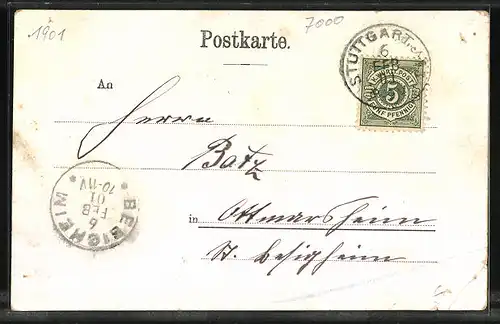 1901
7000
Postkarte.
STUTTGART
6
FEB
K.WÜRTT.POST
5
FÜNF PFENNIG
An
Herrn
Batz
in Ottmarsheim
St. Besigheim
BESIGHEIM
6
FEB
01
10-11V